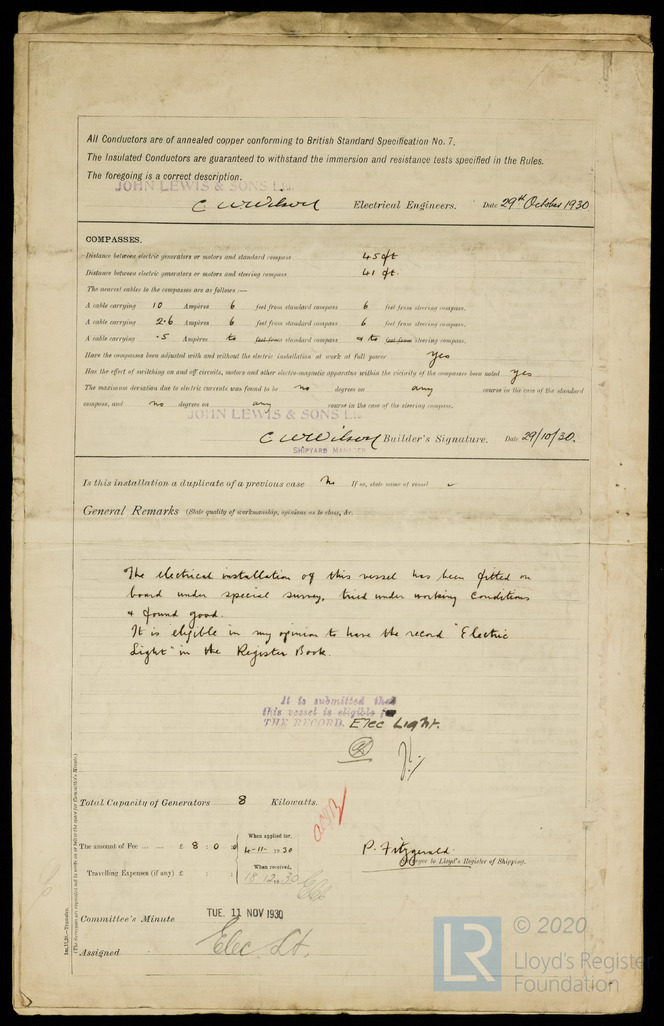 All Conductors are of annealed copper conforming to British Standard Specification No. 7.
The Insulated Conductors are guaranteed to withstand the immersion and resistance tests specified in the Rules.
The foregoing is a correct description.
JOHN LEWIS & SONS LTD.
C W Wilson Electrical Engineers. Date 29th October 1930
COMPASSES.
Distance between electric generators or motors and standard compass 45 ft
Distance between electric generators or motors and steering compass 41 ft.
The nearest cables to the compasses are as follows:—
A cable carrying 10 Ampères 6 feet from standard compass 6 feet from steering compass.
A cable carrying 2.6 Ampères 6 feet from standard compass 6 feet from steering compass.
A cable carrying .5 Ampères to feet from standard compass & to feet from steering compass.
Have the compasses been adjusted with and without the electric installation at work at full power yes
Has the effect of switching on and off circuits, motors and other electro-magnetic apparatus within the vicinity of the compasses been noted yes
The maximum deviation due to electric currents was found to be no degrees on any course in the case of the standard
compass, and no degrees on any course in the case of the steering compass.
JOHN LEWIS & SONS LTD.
C W Wilson Builder's Signature. Date 29/10/30.
SHIPYARD MANAGER
Is this installation a duplicate of a previous case No If so, state name of vessel
General Remarks (State quality of workmanship, opinions as to class, &c.
The electrical installation of this vessel has been fitted on
board under special survey, tried under working conditions
& found good.
It is eligible in my opinion to have the record "Electric
Light" in the Register Book.
It is submitted that
this vessel is eligible for
THE RECORD. Elec Light.
Total Capacity of Generators 8 Kilowatts.
The amount of Fee £ 8 : 0 : When applied for, 4-11-1930
Travelling Expenses (if any) £ : : When received, 18.12.1930
P. Fitzgerald
Surveyor to Lloyd's Register of Shipping.
Committee's Minute TUE. 11 NOV 1930
Assigned Elec. Lt.
1m,11,29.—Transfer.
(The Surveyors are requested not to write on or below the space for Committee's Minute.)
LR
© 2020
Lloyd's Register
Foundation